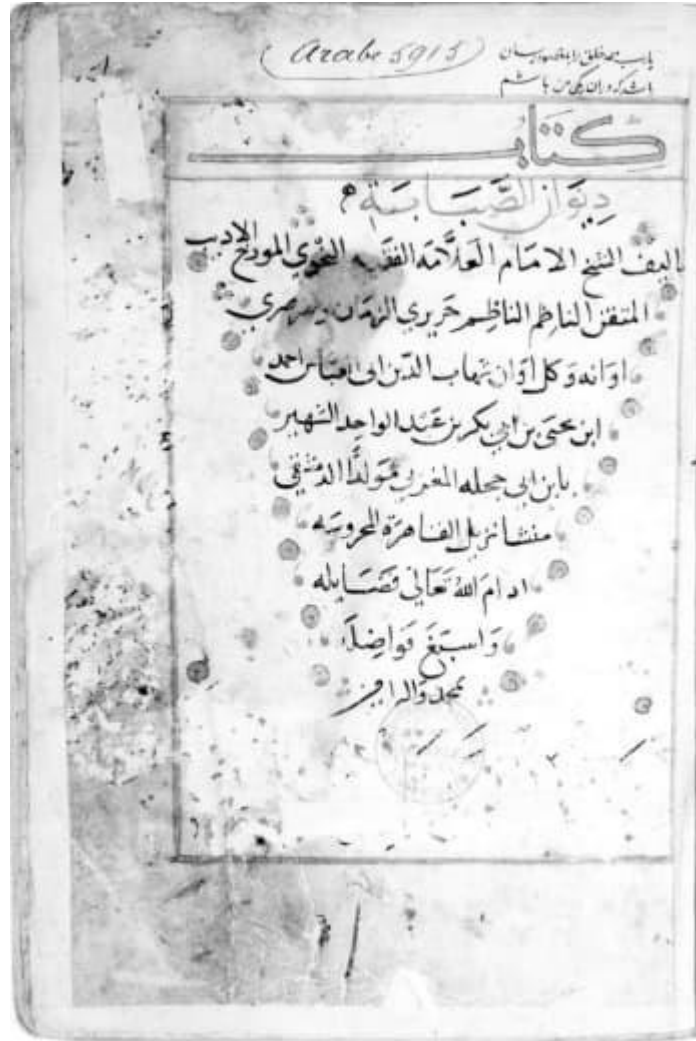 (Arabe 5915)
يارب همه خلق را بمقصود رسان
باشد که در ان یکی من باشم
كتاب
ديوان الصَّبَابة
تاليف الشيخ الامام العلامه الفقيه النحوي المورخ الاديب
المتقن الناظم الناظم حريري الزمان وصرصري
اوانه وكل اوان شهاب الدين ابى العباس احمد
ابن يحيى بن ابي بكر بن عبد الواحد الشهير
بابن ابى حجله المغربي مولدًا الدمشقي
منشا نزيل القاهرة المحروسه
ادام الله تعالى فضايله
واسبغ فواضله
بمحمد واله امين